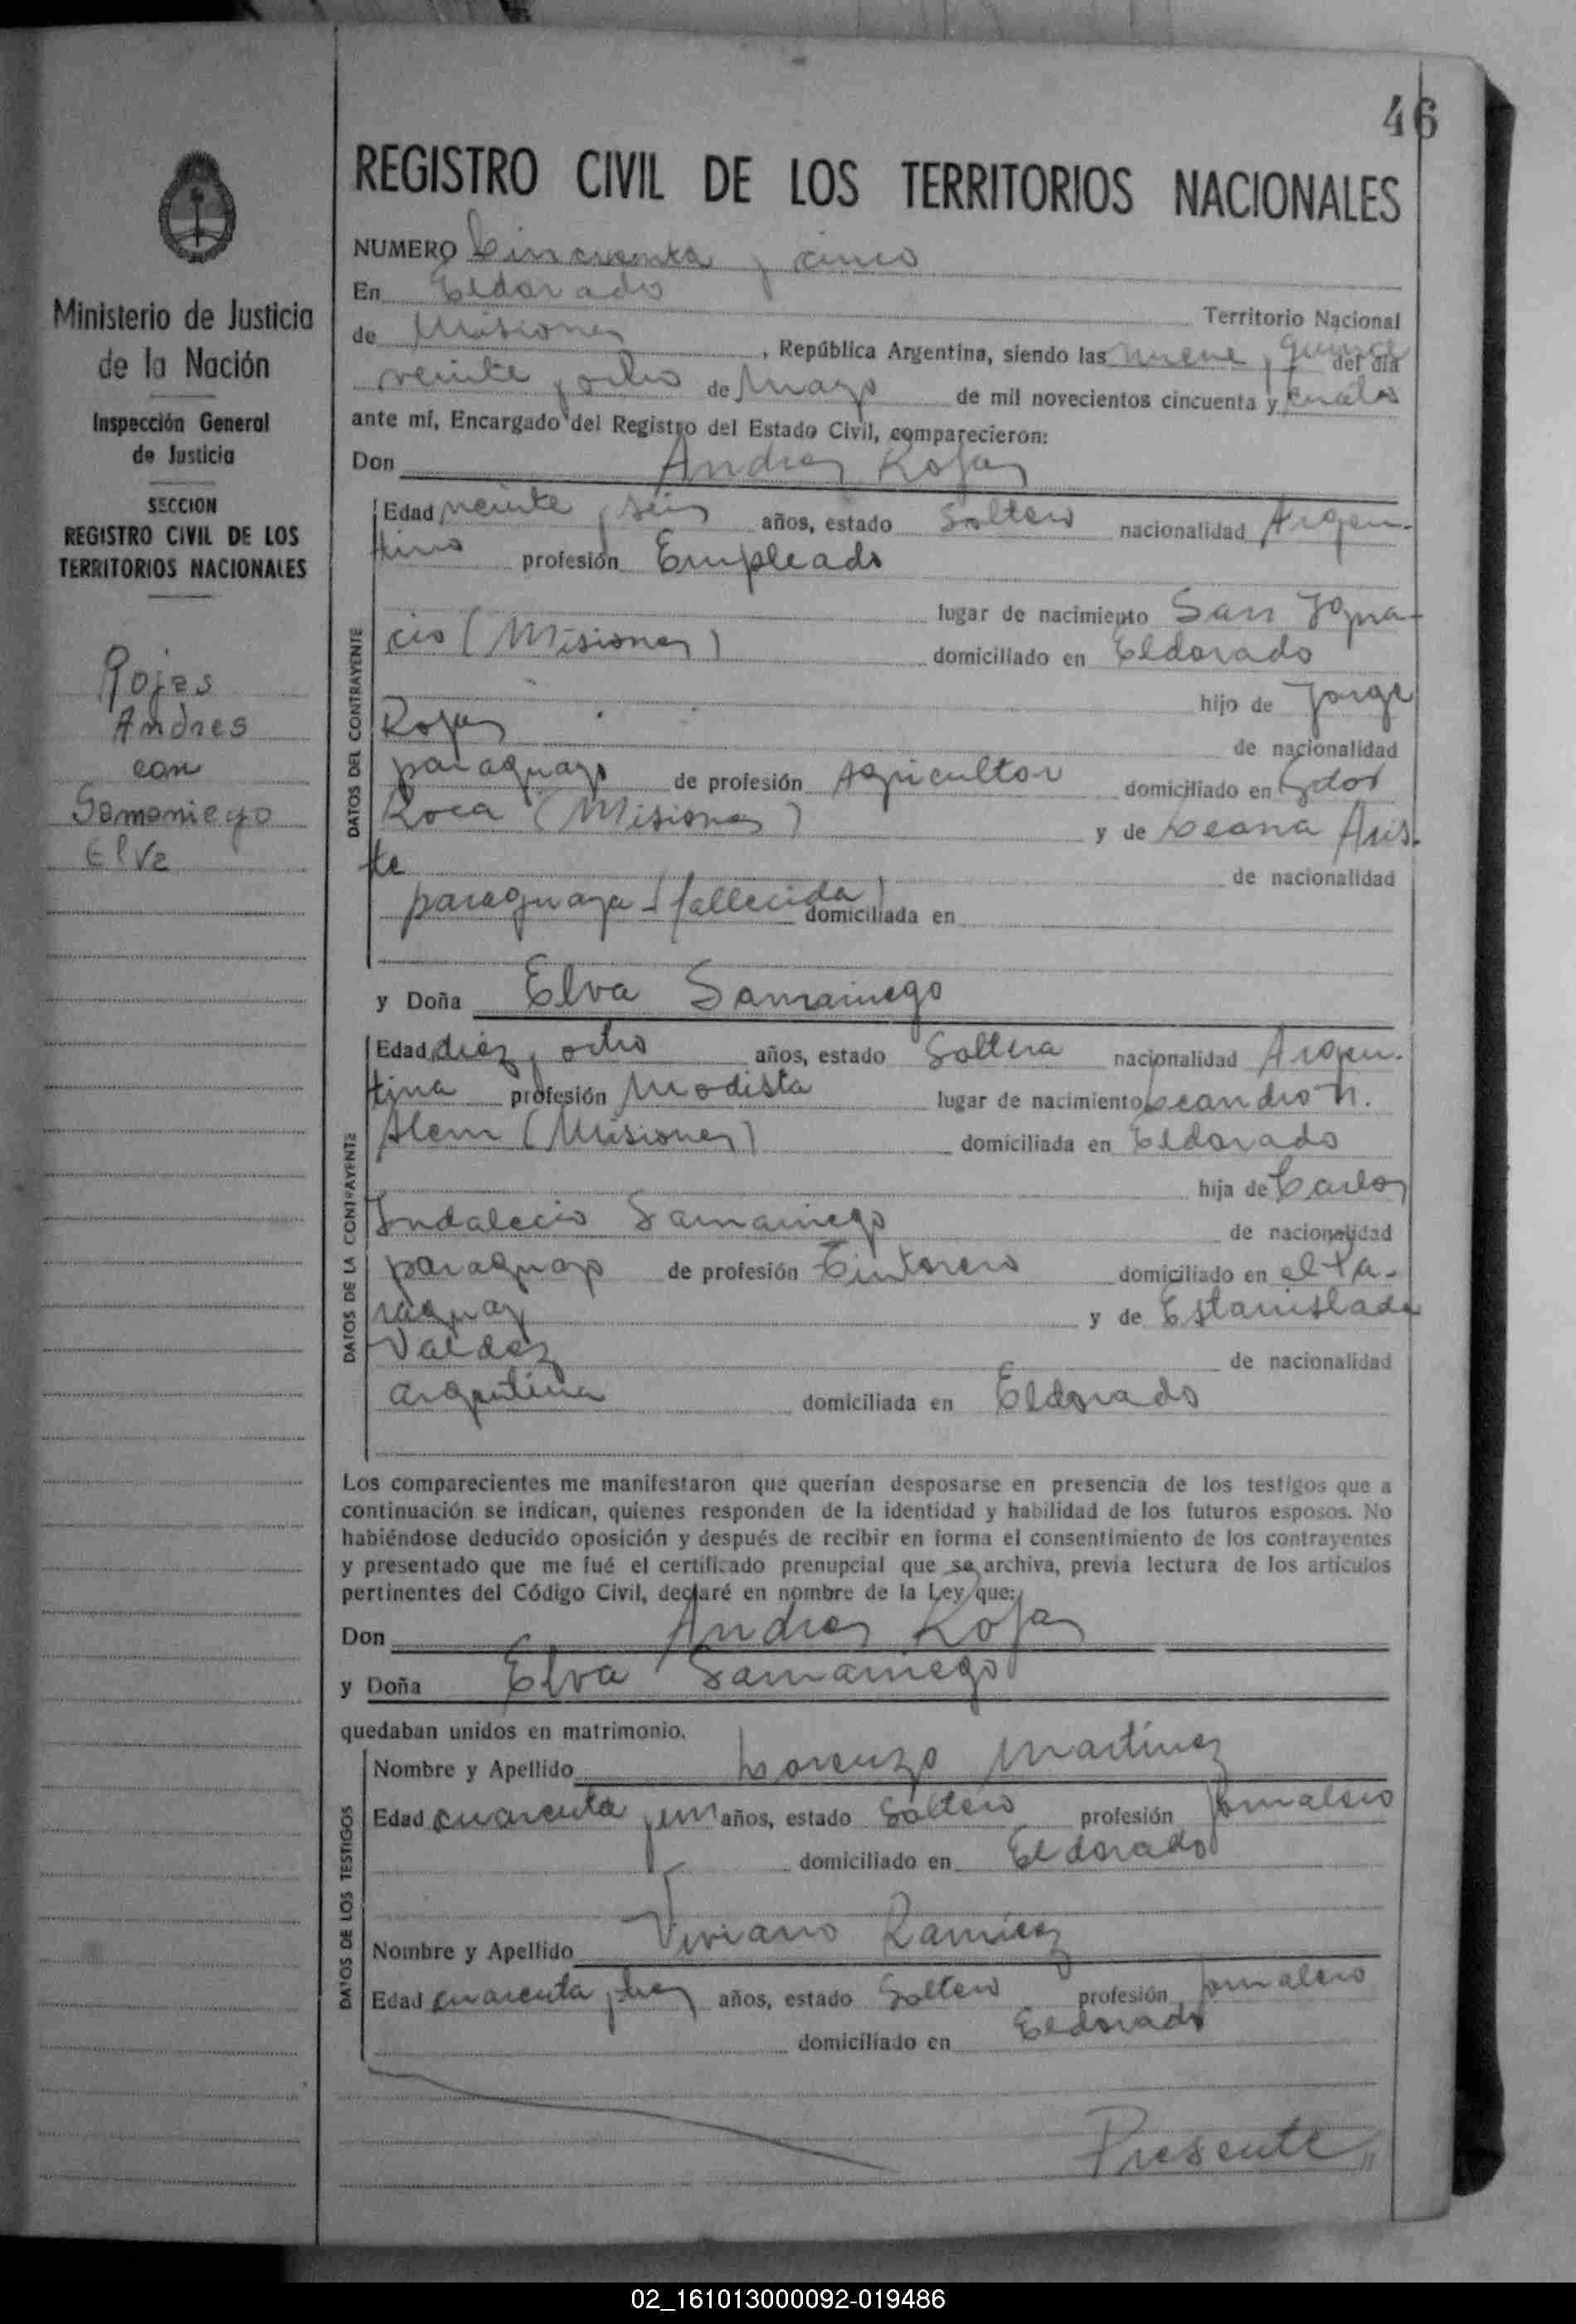 46
REGISTRO CIVIL DE LOS TERRITORIOS NACIONALES
NUMERO Cincuenta y cinco
En Eldorado
Territorio Nacional
de Misiones, República Argentina, siendo las nueve y quince del día
veinte y ocho de Mayo de mil novecientos cincuenta y cuatro
ante mí, Encargado del Registro del Estado Civil, comparecieron:
Don Andres Rojas
Edad veinte y seis años, estado Soltero nacionalidad Argen-
tino profesión Empleado
lugar de nacimiento San Igna-
cio (Misiones) domiciliado en Eldorado
hijo de Jorge
Rojas
de nacionalidad
paraguayo de profesión Agricultor domiciliado en Gdor
Roca (Misiones) y de Leona Aris-
te
de nacionalidad
paraguaya (fallecida) domiciliada en
y Doña Elva Samaniego
Edad diez y ocho años, estado Soltera nacionalidad Argen-
tina profesión Modista lugar de nacimiento Leandro N.
Alem (Misiones) domiciliada en Eldorado
hija de Carlos
Indalecio Samaniego
de nacionalidad
paraguayo de profesión Tintorero domiciliado en el Pa-
raguay y de Estanislada
Valdez
de nacionalidad
argentina domiciliada en Eldorado
Los comparecientes me manifestaron que querían desposarse en presencia de los testigos que a
continuación se indican, quienes responden de la identidad y habilidad de los futuros esposos. No
habiéndose deducido oposición y después de recibir en forma el consentimiento de los contrayentes
y presentado que me fué el certificado prenupcial que se archiva, previa lectura de los artículos
pertinentes del Código Civil, declaré en nombre de la Ley que:
Don Andres Rojas
y Doña Elva Samaniego
quedaban unidos en matrimonio.
Nombre y Apellido Lorenzo Martínez
Edad cuarenta y un años, estado Soltero profesión Jornalero
domiciliado en Eldorado
Nombre y Apellido Viviano Ramirez
Edad cuarenta y tres años, estado Soltero profesión Jornalero
domiciliado en Eldorado
Presente
DATOS DEL CONTRAYENTE
DATOS DE LA CONTRAYENTE
DATOS DE LOS TESTIGOS
Ministerio de Justicia
de la Nación
Inspección General
de Justicia
SECCION
REGISTRO CIVIL DE LOS
TERRITORIOS NACIONALES
Rojas
Andres
con
Samaniego
Elva
02_161013000092-019486